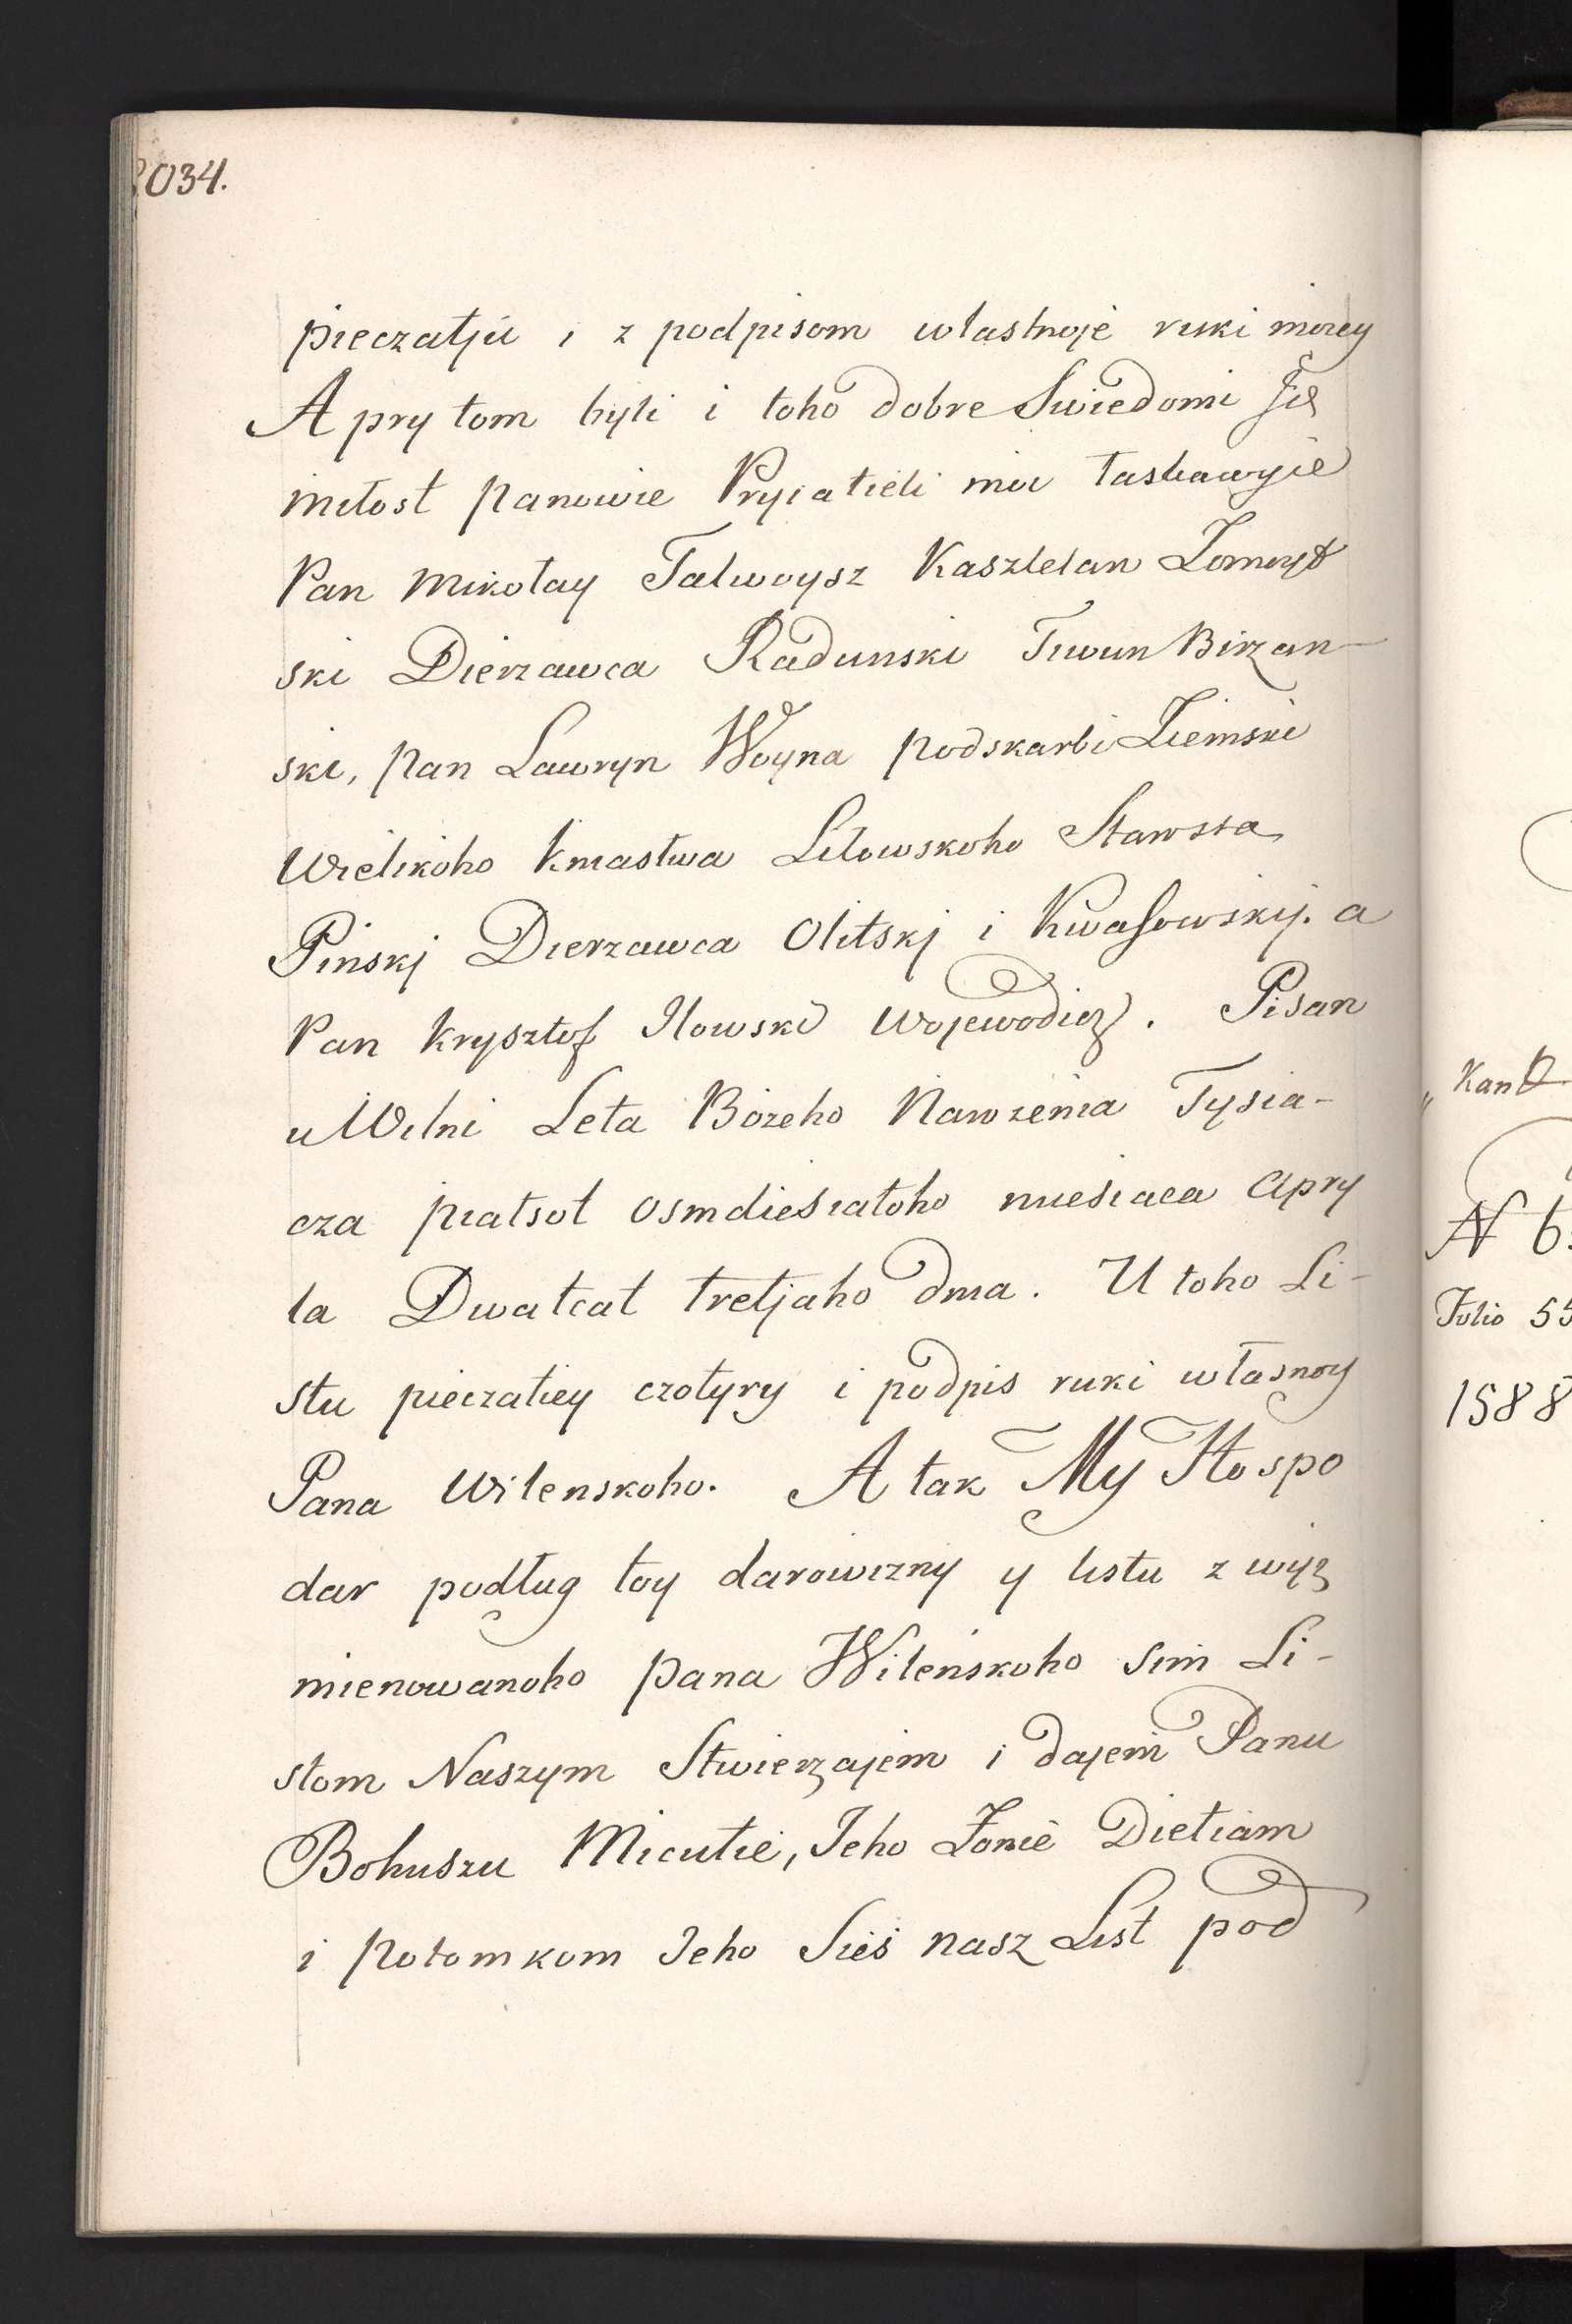 2034.
pieczatju i z podpisom wlastnoje ruki mojey
A pry tom byli i toho dobre Swiedomi Jch
miłost Panowie Pryiatieli moi łaskawyie
Pan Mikołay Talwoysz Kasztelan Żomoyt
ski Dierzawca Radunski Tiwun Birzan-
ski, Pan Lawryn Woyna Podskarbi Ziemski
Wielikoho Kniastwa Litowskoho Starosta
Pinskj Dierzawca Olitskj i Kwasowskij. a
Pan Krysztof Ilowski Wojewodicz. Pisan
u Wilni Leta Bożeho Narożenia Tysia-
cza piatsot osmdiesiatoho miesiaca Apry
la Dwatcat tretjaho dnia. U toho Li-
stu pieczatiey czotyry i podpis ruki własnoy
Pana Wilenskoho. A tak My Hospo
dar podług toy darowizny y listu z wyż
mienowanoho Pana Wileńskoho sim Li-
stom Naszym Stwierzajem i dajem Panu
Bohuszu Micutie, Jeho Żonie Dietiam
i Potomkom Jeho Sieś nasz List pod
Kan
N 6
Folio 55
1588